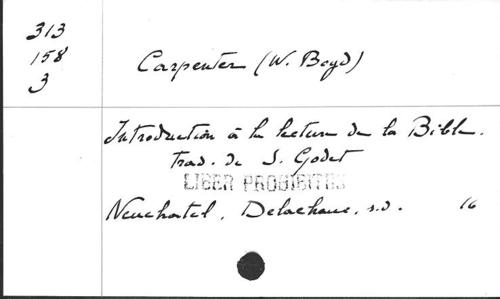 313
158
3
Carpenter (W. Boyd)
Introduction à la lecture de la Bible.
trad. de S. Godet
LIBER PROHIBITUS
Neuchatel, Delachaux, s.d. 16